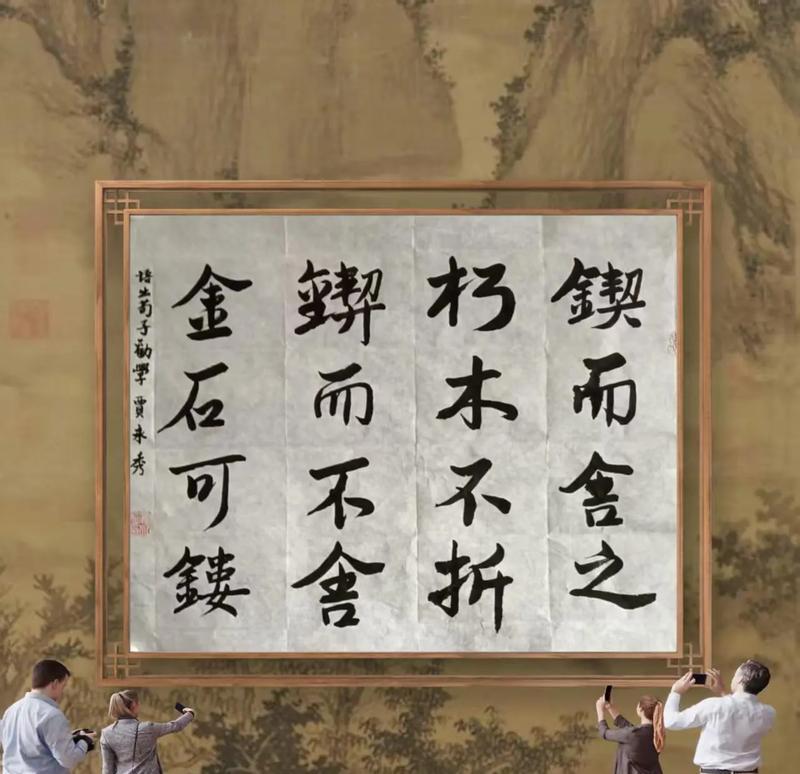 鍥而舍之
朽木不折
鍥而不舍
金石可鏤
语出荀子勸學 賈永秀